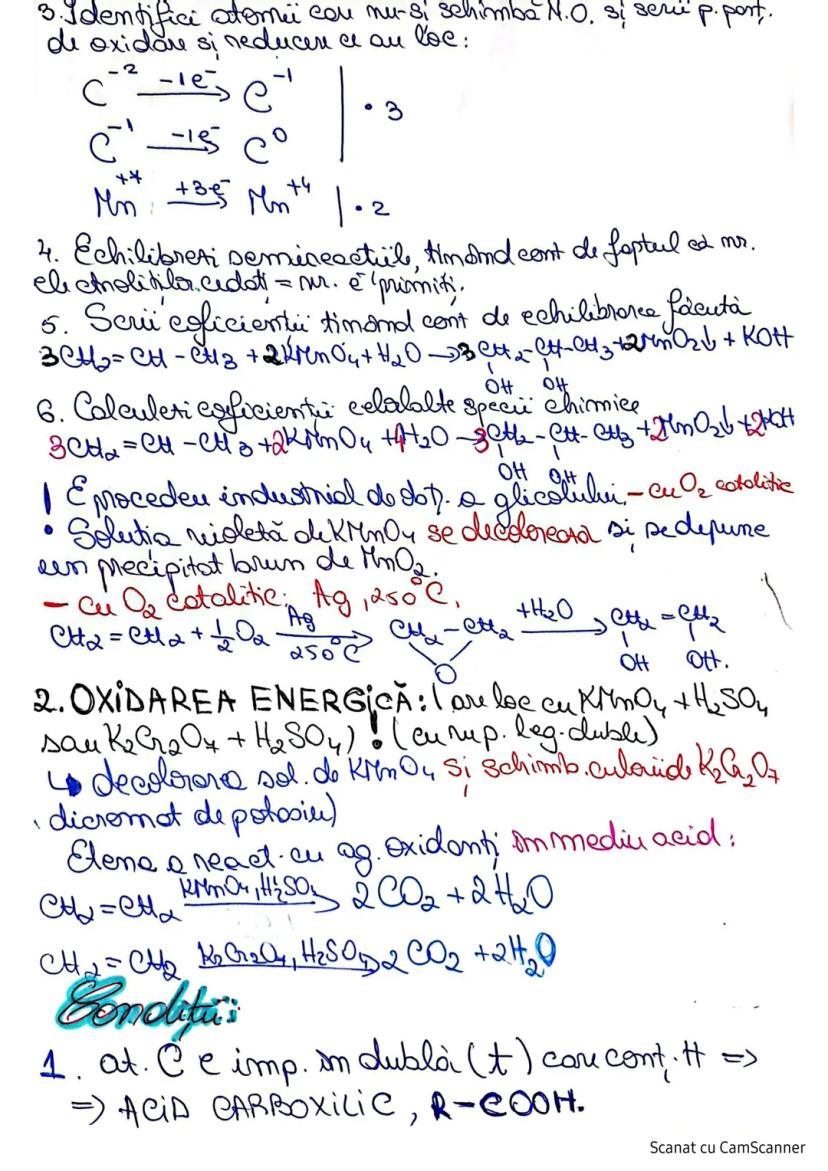 3. Identifici atomii care nu-și schimbă N.O. și scrii p. part.
de oxidare și reducere ce au loc:
C⁻² –1e⁻→ C⁻¹ | • 3
C⁻¹ –1e⁻→ C⁰
Mn⁺⁷ +3e⁻→ Mn⁺⁴ | • 2
4. Echilibrezi semireacțiile, ținând cont de faptul că nr.
electroliților cedați = nr. e⁻ primiți.
5. Scrii coficienții ținând cont de echilibrarea făcută
3CH₂=CH–CH₃+2KMnO₄+H₂O→3CH₂–CH–CH₃+2MnO₂↓+KOH
OH OH
6. Calculezi coficienții celorlalte specii chimice
3CH₂=CH–CH₃+2KMnO₄+4H₂O→3CH₂–CH–CH₃+2MnO₂↓+2KOH
OH OH
! E procedeu industrial de obț. a glicolului. – cu O₂ catalitic
• Soluția violetă de KMnO₄ se decolorează și se depune
un precipitat brun de MnO₂.
– cu O₂ catalitic; Ag, 250°C.
CH₂=CH₂+½O₂ Ag 250°C→ CH₂–CH₂ +H₂O→ CH₂–CH₂
O OH OH.
2. OXIDAREA ENERGICĂ: (are loc cu KMnO₄+H₂SO₄
sau K₂Cr₂O₇+H₂SO₄)! (cu rup. leg. duble)
↳ decolorarea sol. de KMnO₄ și schimb. culorii de K₂Cr₂O₇
dicromat de potasiu)
Etena a react. cu ag. oxidanți în mediu acid:
CH₂=CH₂ KMnO₄, H₂SO₄→ 2CO₂+2H₂O
CH₂=CH₂ K₂Cr₂O₇, H₂SO₄→ 2CO₂+2H₂O
Condiții:
1. at. C e imp. în dublă (t) care conț. H =>
=> ACID CARBOXILIC, R–COOH.
Scanat cu CamScanner